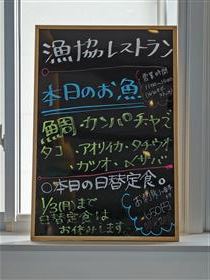 漁協レストラン
本日のお魚
営業時間
鯛・カンパチ・ヤズ
タコ・アオリイカ・タチウオ
・カツオ・メサバ
○本日の日替定食。
1/3(月)まで
日替定食は
お休みします。